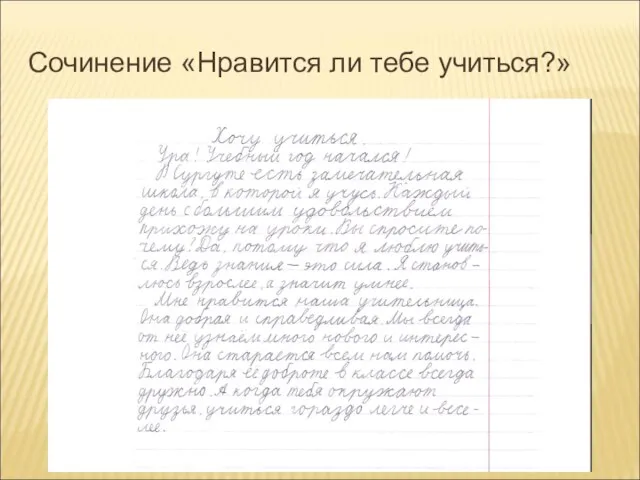 Сочинение «Нравится ли тебе учиться?»
Хочу учиться.
Ура! Учебный год начался!
В Сургуте есть замечательная
школа, в которой я учусь. Каждый
день с большим удовольствием
прихожу на уроки. Вы спросите по-
чему? Да, потому что я люблю учить-
ся. Ведь знания – это сила. Я станов-
люсь взрослее, а значит умнее.
Мне нравится наша учительница.
Она добрая и справедливая. Мы всегда
от неё узнаём много нового и интерес-
ного. Она старается всем нам помочь.
Благодаря её доброте в классе всегда
дружно. А когда тебя окружают
друзья, учиться гораздо легче и весе-
лее.